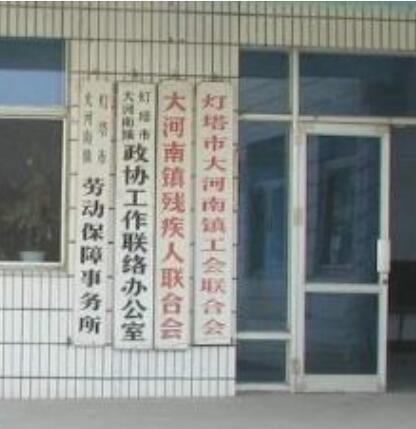 灯塔市
大河南镇
劳动保障事务所
灯塔市
大河南镇
政协工作联络办公室
大河南镇残疾人联合会
灯塔市大河南镇工会联合会